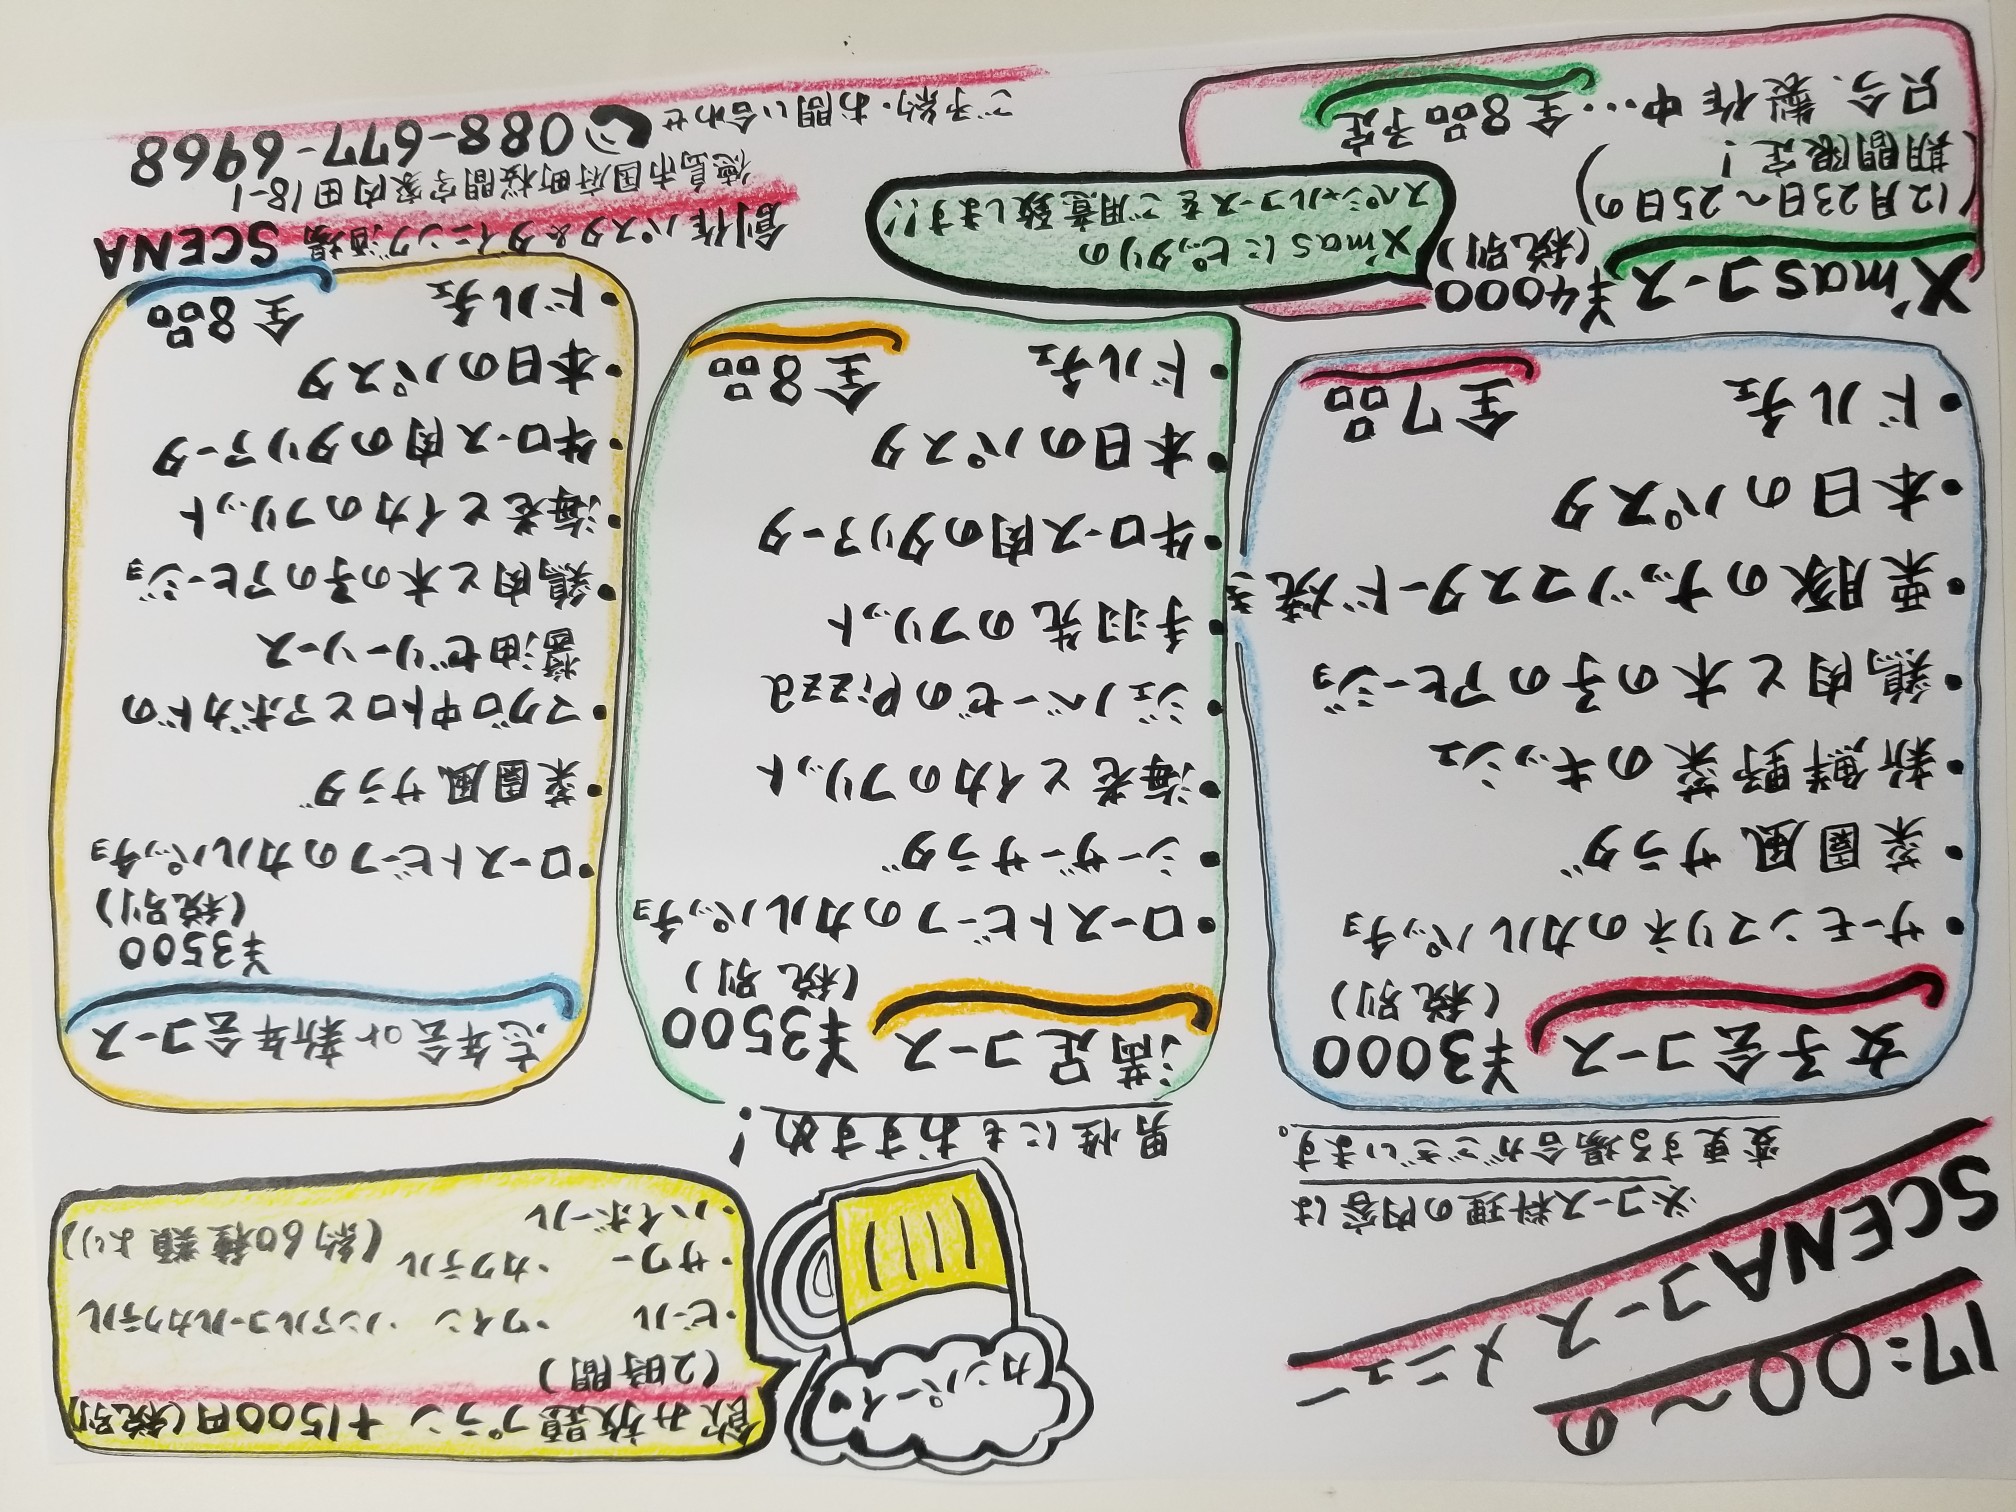 17:00〜の
SCENAコース
メニュー
※コース料理の内容は
変更する場合がございます。
カンパーイ
飲み放題プラン +1500円(税別)
(2時間)
・ビール ・ワイン ・ノンアルコールカクテル
・サワー ・カクテル (約60種類より)
・ハイボール
女子会コース ¥3000
(税別)
・サーモンマリネのカルパッチョ
・菜園風サラダ
・新鮮野菜のキッシュ
・鶏肉と木の子のアヒージョ
・栗豚のナッツマスタード焼き
・本日のパスタ
・ドルチェ 全7品
男性にもおすすめ!
満足コース ¥3500
(税別)
・ローストビーフのカルパッチョ
・シーザーサラダ
・海老とイカのフリット
・ジェノベーゼのPizza
・手羽先のフリット
・牛ロース肉のタリアータ
・本日のパスタ
・ドルチェ 全8品
忘年会or新年会コース
¥3500
(税別)
・ローストビーフのカルパッチョ
・菜園風サラダ
・マグロ中トロとアボカドの
醤油ゼリーソース
・鶏肉と木の子のアヒージョ
・海老とイカのフリット
・牛ロース肉のタリアータ
・本日のパスタ
・ドルチェ 全8品
X'masコース ¥4000
(税別)
(12月23日〜25日の
期間限定!)
只今、製作中…全8品予定
X'masにピッタリの
スペシャルコースをご用意致します!!
創作パスタ&ダイニング酒場 SCENA
徳島市国府町桜間字家内田18-1
ご予約・お問い合わせ 088-677-6968